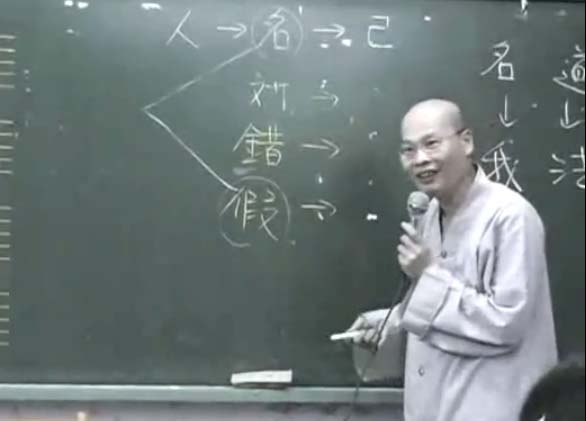 人→名→己
対→
錯→
假→
道↓法
名↓我